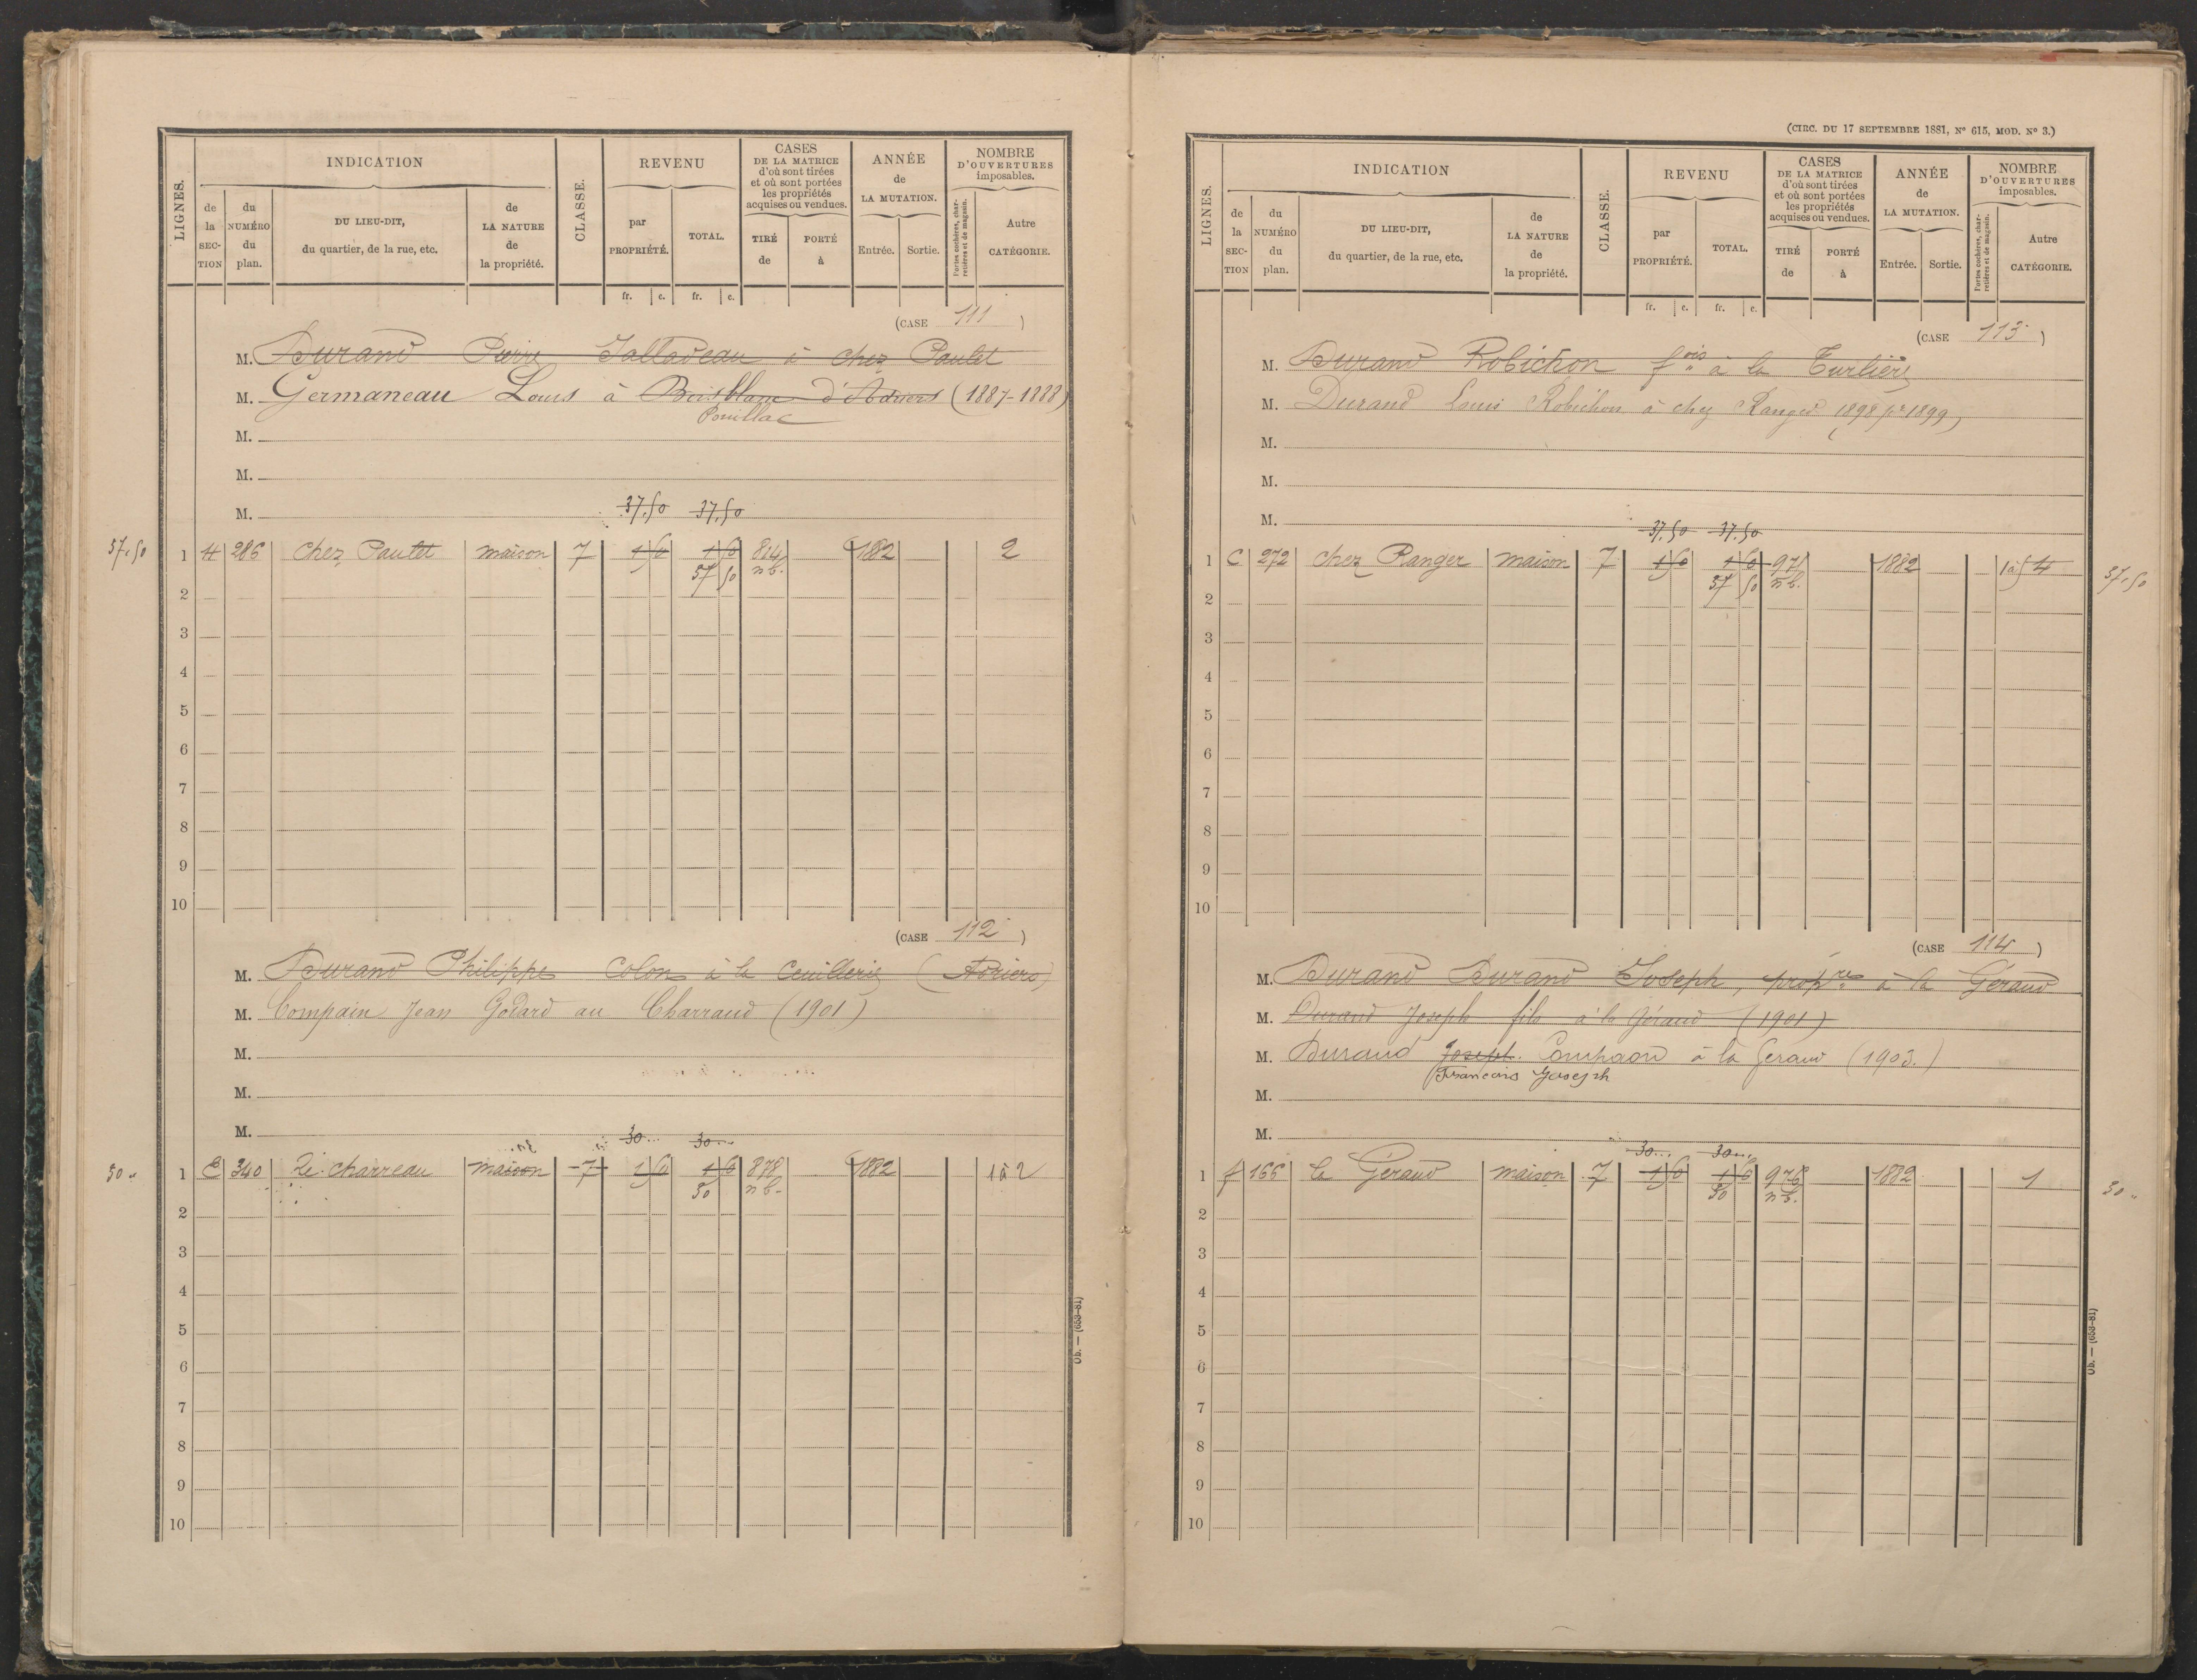 LIGNES.
INDICATION
de la SECTION
du NUMÉRO du plan.
DU LIEU-DIT, du quartier, de la rue, etc.
de LA NATURE de la propriété.
CLASSE.
REVENU
par PROPRIÉTÉ.
TOTAL.
CASES DE LA MATRICE d'où sont tirées et où sont portées les propriétés acquises ou vendues.
TIRÉ de
PORTÉ à
ANNÉE de LA MUTATION.
Entrée.
Sortie.
NOMBRE D'OUVERTURES imposables.
Portes cochères, charretières et de magasin.
Autre CATÉGORIE.
fr. c. fr. c.
(CASE 111)
M. Durand Pierre à chez Paulet
M. Germaneau Louis à Boisblanc d'Adriers (1887-1888)
Pouillac
M.
M.
M.
37.50 37.50
37.50
1 H 286 chez Paulet maison 7 814 1882 2
37 50 nb.
2
3
4
5
6
7
8
9
10
(CASE 112)
M. Durand Philippe colon à la (Adriers)
M. Compain Jean Godard au Charraud (1901)
M.
M.
M.
30... 30...
30 "
1 E 340 charreau maison 7 878 1882 1 à 2
30 nb.
2
3
4
5
6
7
8
9
10
Ob. — (653-81)
(CIRC. DU 17 SEPTEMBRE 1881, Nº 615, MOD. Nº 3.)
LIGNES.
INDICATION
de la SECTION
du NUMÉRO du plan.
DU LIEU-DIT, du quartier, de la rue, etc.
de LA NATURE de la propriété.
CLASSE.
REVENU
par PROPRIÉTÉ.
TOTAL.
CASES DE LA MATRICE d'où sont tirées et où sont portées les propriétés acquises ou vendues.
TIRÉ de
PORTÉ à
ANNÉE de LA MUTATION.
Entrée.
Sortie.
NOMBRE D'OUVERTURES imposables.
Portes cochères, charretières et de magasin.
Autre CATÉGORIE.
fr. c. fr. c.
(CASE 113)
M. Durand Robichon fois à la
M. Durand Louis Robichon à chez Ranger (1898 pr 1899)
M.
M.
M.
37.50 37.50
1 C 272 chez Ranger maison 7 971 1882 4
37 50 nb.
37.50
2
3
4
5
6
7
8
9
10
(CASE 114)
M. Durand Durand Joseph, propre à la Géraud
M. Durand Joseph fils à la Géraud (1901)
M. Durand Joseph Compaon à la Geraud (1903.)
François Joseph
M.
M.
30... 30...
1 f 166 la Géraud maison 7 976 1882 1
30 nb.
30 "
2
3
4
5
6
7
8
9
10
Ob. — (653-81)